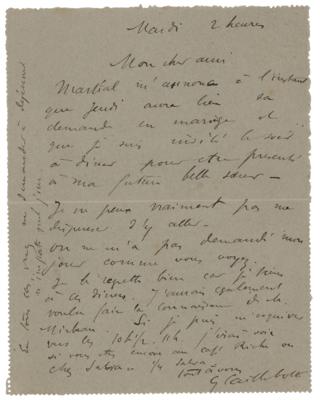 Mardi 2 heures
Mon cher ami
Martial m'annonce à l'instant
que jeudi aura lieu sa
demande en mariage et
que je suis invité le soir
à dîner pour être présenté
à ma future belle sœur —
Je ne peux vraiment pas me
dispenser d'y aller —
on ne m'a pas demandé mon
jour comme vous voyez.
Je le regrette bien car je tiens
à ces dîners. J'aurais également
voulu faire la connaissance de M.
Mirbeau. Si je puis m'esquiver
vers les 10h½ 11h j'irai voir
si vous êtes encore au café Riche ou
chez
Tout à vous
G Caillebotte
En tous cas venez me demander à déjeuner